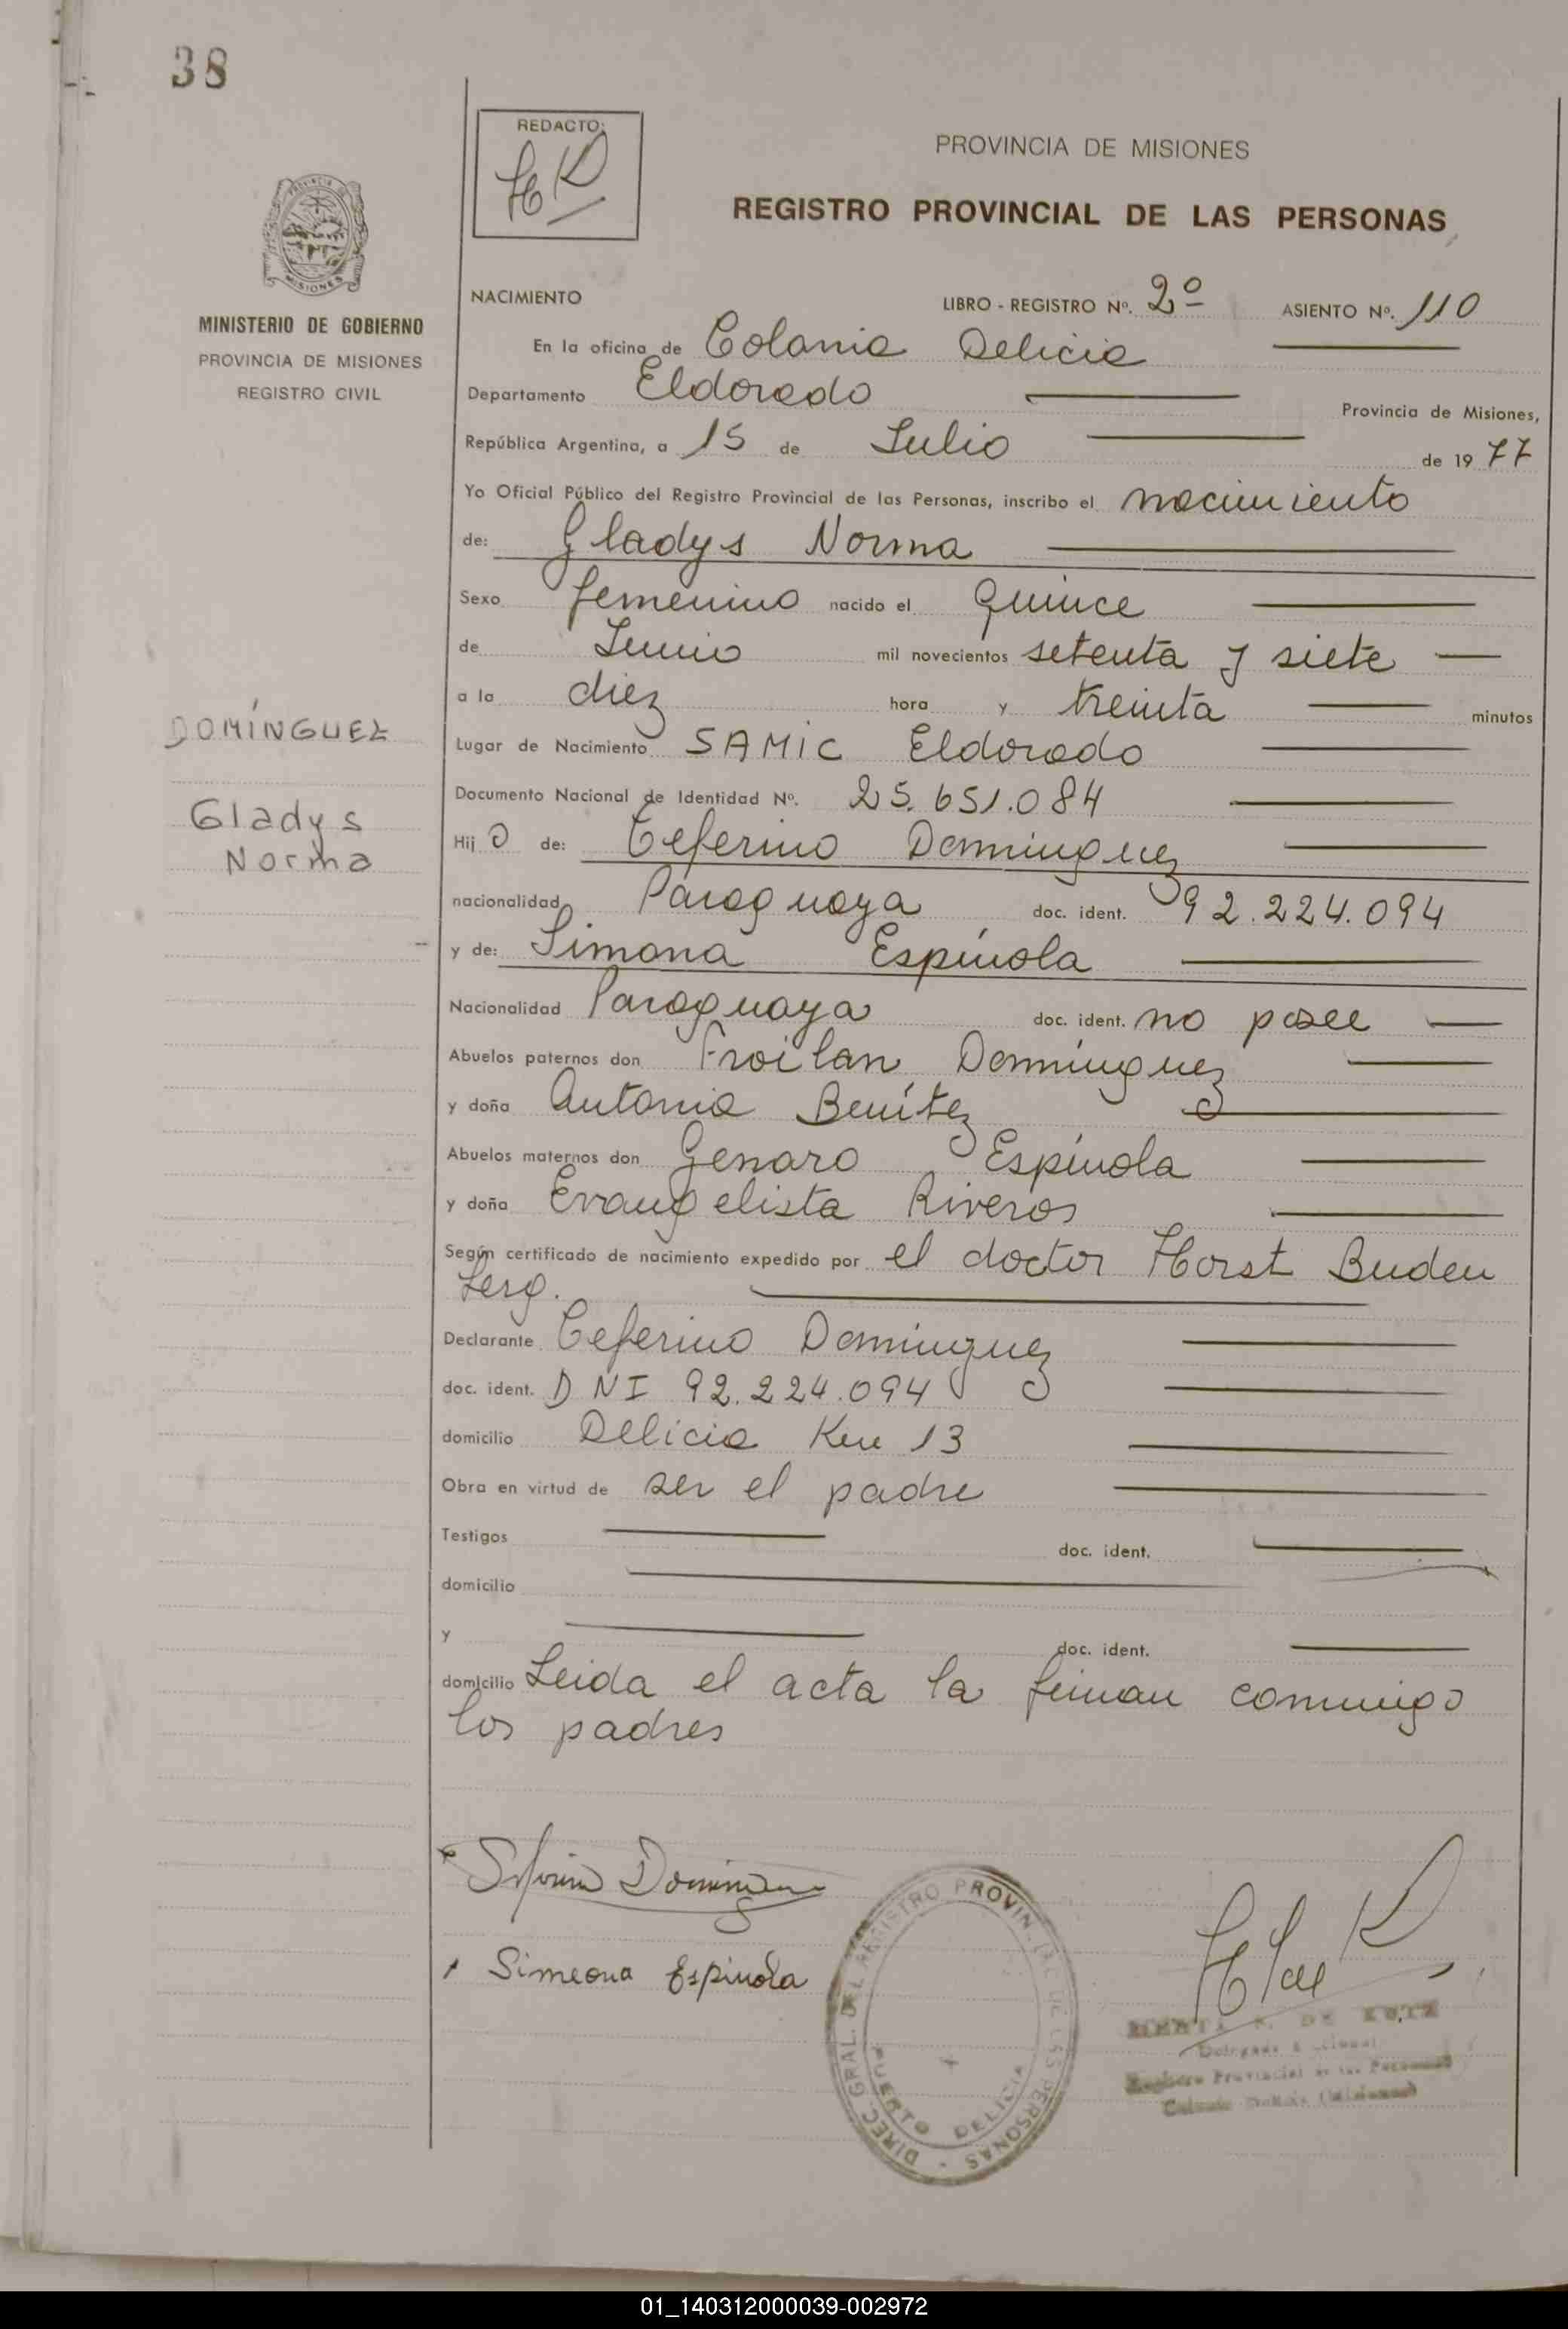 38
REDACTO:
PROVINCIA DE MISIONES
REGISTRO PROVINCIAL DE LAS PERSONAS
MISIONES
MINISTERIO DE GOBIERNO
PROVINCIA DE MISIONES
REGISTRO CIVIL
NACIMIENTO LIBRO - REGISTRO Nº. 2º ASIENTO Nº. 110
En la oficina de Colonia Delicia
Departamento Eldorado Provincia de Misiones,
República Argentina, a 15 de Julio de 1977
Yo Oficial Público del Registro Provincial de las Personas, inscribo el nacimiento
de: Gladys Norma
Sexo femenino nacido el quince
de Junio mil novecientos setenta y siete
a la diez hora y treinta minutos
DOMÍNGUEZ
Lugar de Nacimiento SAMIC Eldorado
Documento Nacional de Identidad Nº. 25.651.084
Gladys
Norma
Hij a de: Ceferino Domínguez
nacionalidad Paraguaya doc. ident. 92.224.094
y de: Simona Espínola
Nacionalidad Paraguaya doc. ident. no posee
Abuelos paternos don Froilan Domínguez
y doña Antonia Benítez
Abuelos maternos don Genaro Espínola
y doña Evangelista Riveros
Según certificado de nacimiento expedido por el doctor Horst Buden
Declarante Ceferino Domínguez
doc. ident. DNI 92.224.094
domicilio Delicia Km 13
Obra en virtud de ser el padre
Testigos doc. ident.
domicilio
y doc. ident.
domicilio Leida el acta la firman conmigo
los padres
Simeona Espinola
DIREC. GRAL. DEL REGISTRO PROVINCIAL DE LAS PERSONAS -
PUERTO DELICIA
Registro Provincial de las Personas
01_140312000039-002972